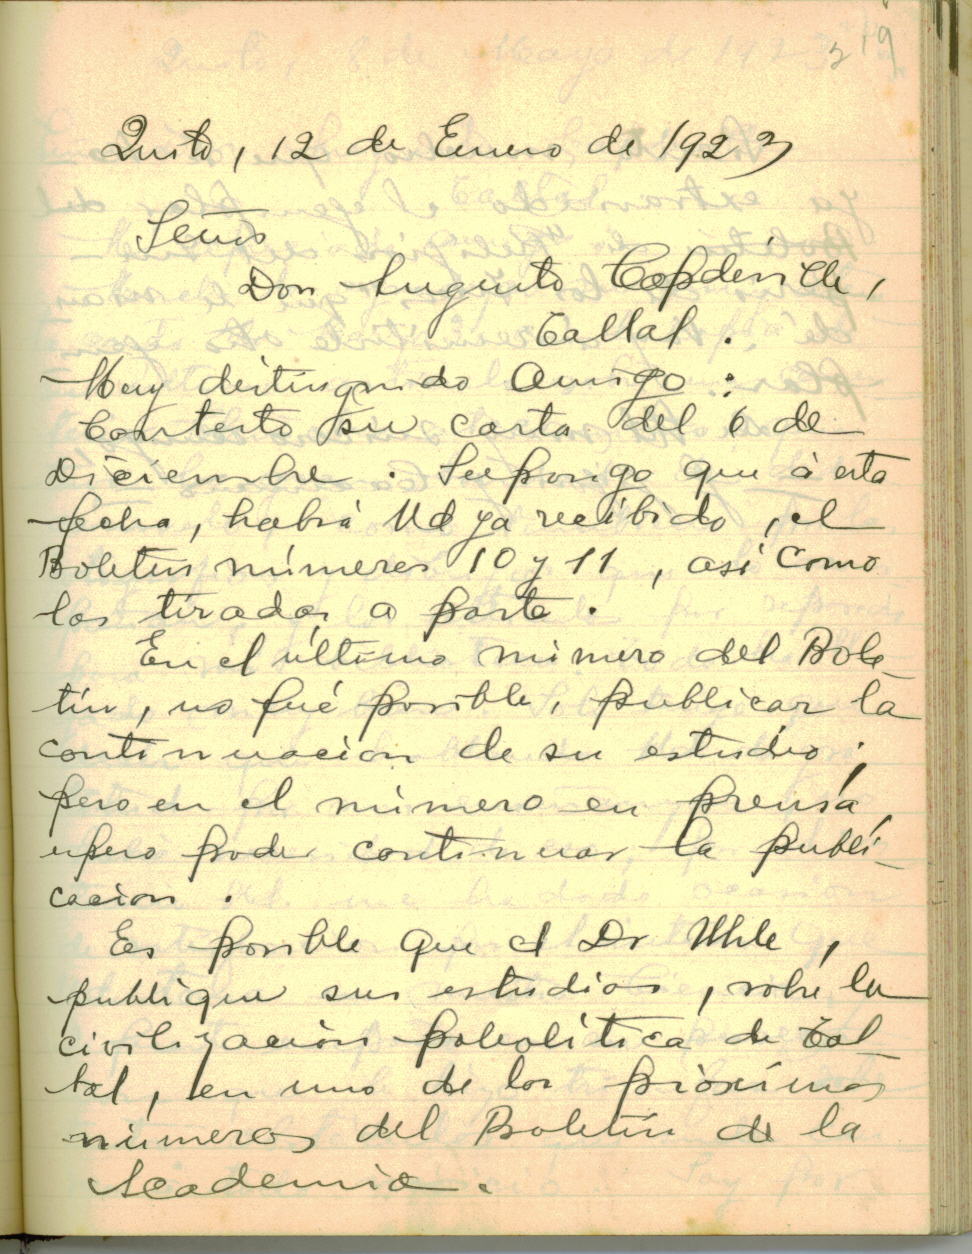 319
Quito, 12 de Enero de 1923
Señor
Don Augusto Capdeville,
Taltal.
Muy distinguido amigo:
Contesto su carta del 6 de
Diciembre. Supongo que à esta
fecha, habrá Ud ya recibido, el
Boletín números 10 y 11, así como
los tirados a parte.
En el último número del Bole
tín, no fué posible, publicar la
continuación de su estudio;
pero en el número en prensa,
espero poder continuar la publi-
cación.
Es posible que el Dr Uhle,
publique sus estudios, sobre la
civilización paleolítica de Tal
tal, en uno de los próximos
números del Boletín de la
Academia.